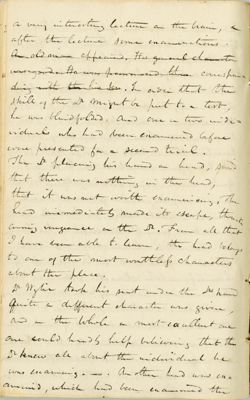 a very interesting lecture on the brain, &
after the lecture some examinations.
An old man appeared. His general character
correspon-
ding with the In order that the
skill of the Dr might be put to a test,
he was blindfolded. And one or two indiv-
iduals who had been examined before
were presented for a second trial.
The Dr placing his hand on head, said
that there was nothing in the head,
that it was not worth examining. The
head immediately made its escape, threat-
ening vengeance on the Dr. From all that
I have been able to learn, the head belongs
to one of the most worthless characters
about the place.
Dr Wylie took his seat under the Dr hand
Quite a different character was given,
and on the whole a most excellent one
one could hardly help believing that the
Dr knew all about the individual he
was examining. Another head was ex-
amined, which had been examined the